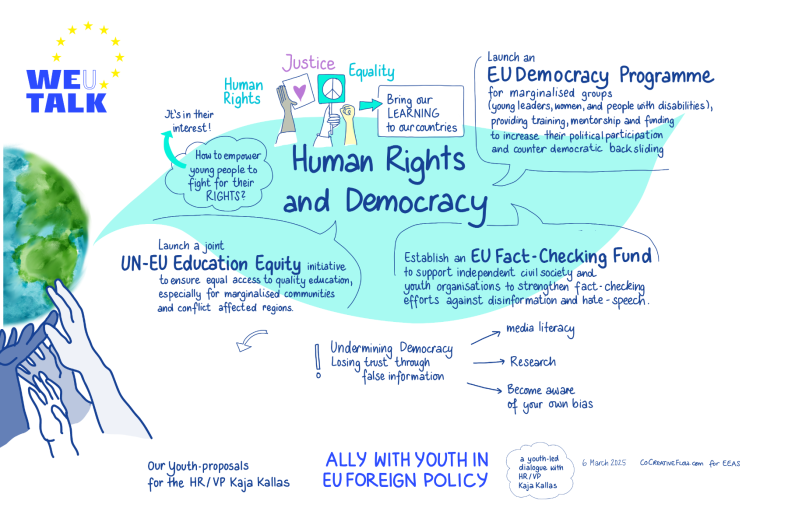 WE U
TALK
Human
Rights
Justice
Equality
Bring our
LEARNING
to our countries
It's in their
interest!
How to empower
young people to
fight for their
RIGHTS?
Launch an
EU Democracy Programme
for marginalised groups
(young leaders, women, and people with disabilities),
providing training, mentorship and funding
to increase their political participation
and counter democratic backsliding
Human Rights
and Democracy
Launch a joint
UN-EU Education Equity initiative
to ensure equal access to quality education,
especially for marginalised communities
and conflict affected regions.
Establish an EU Fact-Checking Fund
to support independent civil society and
youth organisations to strengthen fact-checking
efforts against disinformation and hate-speech.
! Undermining Democracy
Losing trust through
false information
media literacy
Research
Become aware
of your own bias
Our Youth-proposals
for the HR/VP Kaja Kallas
ALLY WITH YOUTH IN
EU FOREIGN POLICY
a youth-led
dialogue with
HR/VP
Kaja Kallas
6 March 2025
CoCreativeFlow.com for EEAS